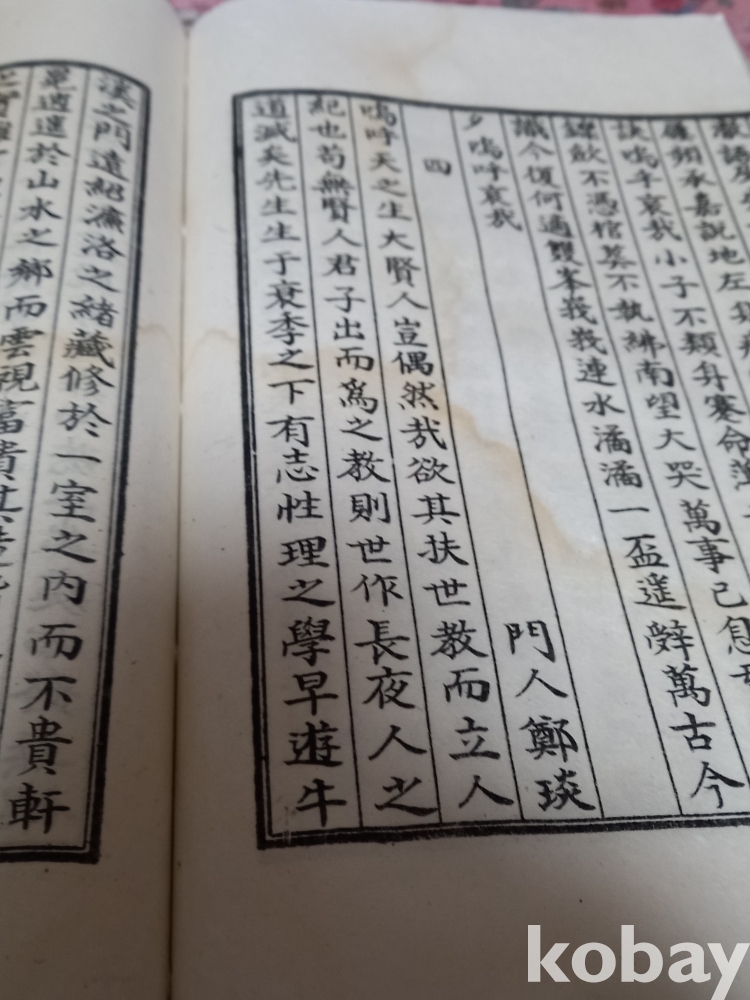 嚴語
廉頻承嘉說地左
訣嗚乎哀哉小子不類舛寒命
歆不憑棺葬不執紼南望大哭萬事已息
識今復何適雙峯峩峩連水潏潏一盃遙辭萬古今
夕嗚呼哀哉
四 門人鄭琰
嗚呼天之生大賢人豈偶然哉欲其扶世教而立人
紀也苟無賢人君子出而爲之教則世作長夜人之
道滅矣先生生于衰季之下有志性理之學早遊牛
溪之門遠紹濂洛之緖藏修於一室之內而不貴軒
冕逍遙於山水之鄕而雲視富貴其
kobay